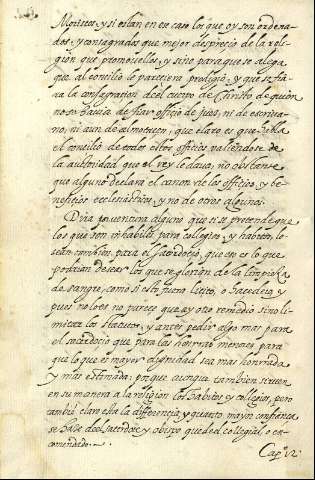 Moriscos, y si estàn en ese caso los que oy son ordena-
dos, y consagrados que mejor desprecio de la reli-
gion que promovelles, y si no para que se alega
que al concilio le pareciera prodigio, y que se fia-
ra la consagracion del cuerpo de Christo de quien
no se havia de fiar officio de Juez, ni de escriva-
no, ni aun de almotacen, que claro es que habla
el concilio de todos estos officios valiendose de
la autoridad que el rey le dava, no obstante
que alguno declara el canon de los officios, y be-
neficios ecclesiasticos, y no de otros algunos.
Dira por ventura alguno que si se pretende que
los que son inhabiles para collegios, y habitos lo
sean tambien para el sacerdocio, que eso es lo que
podrian desear los que se glorian de la limpieça
de sangre, como si esto fuera licito, o hacedero, y
pues no lo es no parece que ay otro remedio sino li-
mitar los statutos, y antes pedir algo mas para
el sacerdocio que para las honras menores para
que lo que es mayor dignidad sea mas honrrada
y mas estimada, porque aunque tambien sirven
en su manera a la religion los habitos y collegios, pero
tambien claro esta la diferencia, y quanto mayor confiança
se hace del sacerdote, y obispo que del collegial, o co-
mendador.
Cap.º 12.